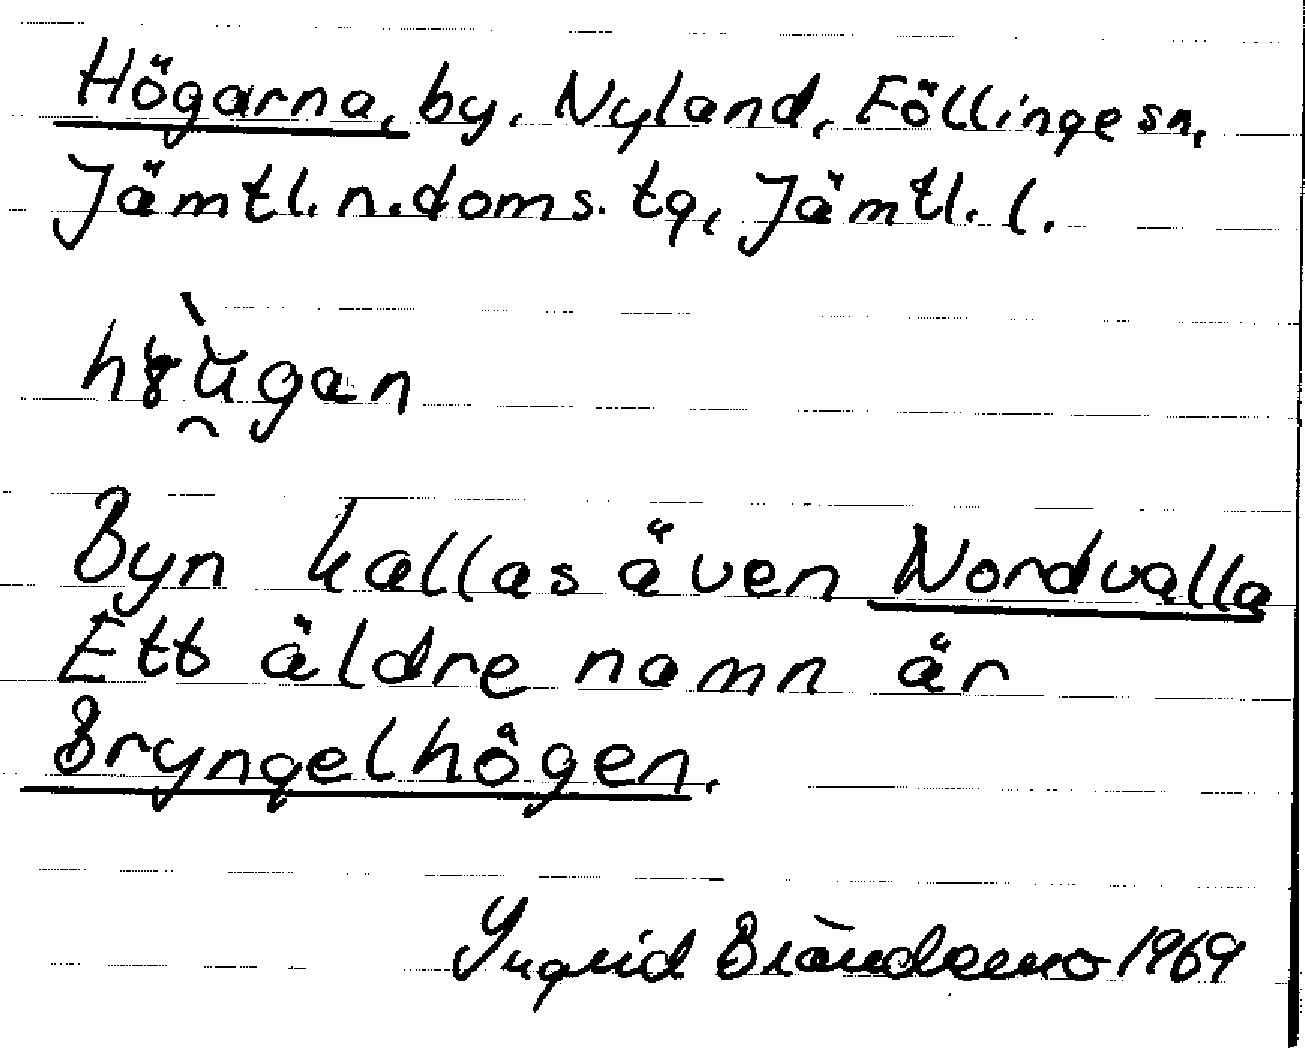 Högarna, by, Nyland, Föllinge sn,
Jämtl. n. doms. tg, Jämtl. l.
Byn kallas även Nordvalla
Ett äldre namn är
Bryngelhögen.
Ingrid Brändemo 1969